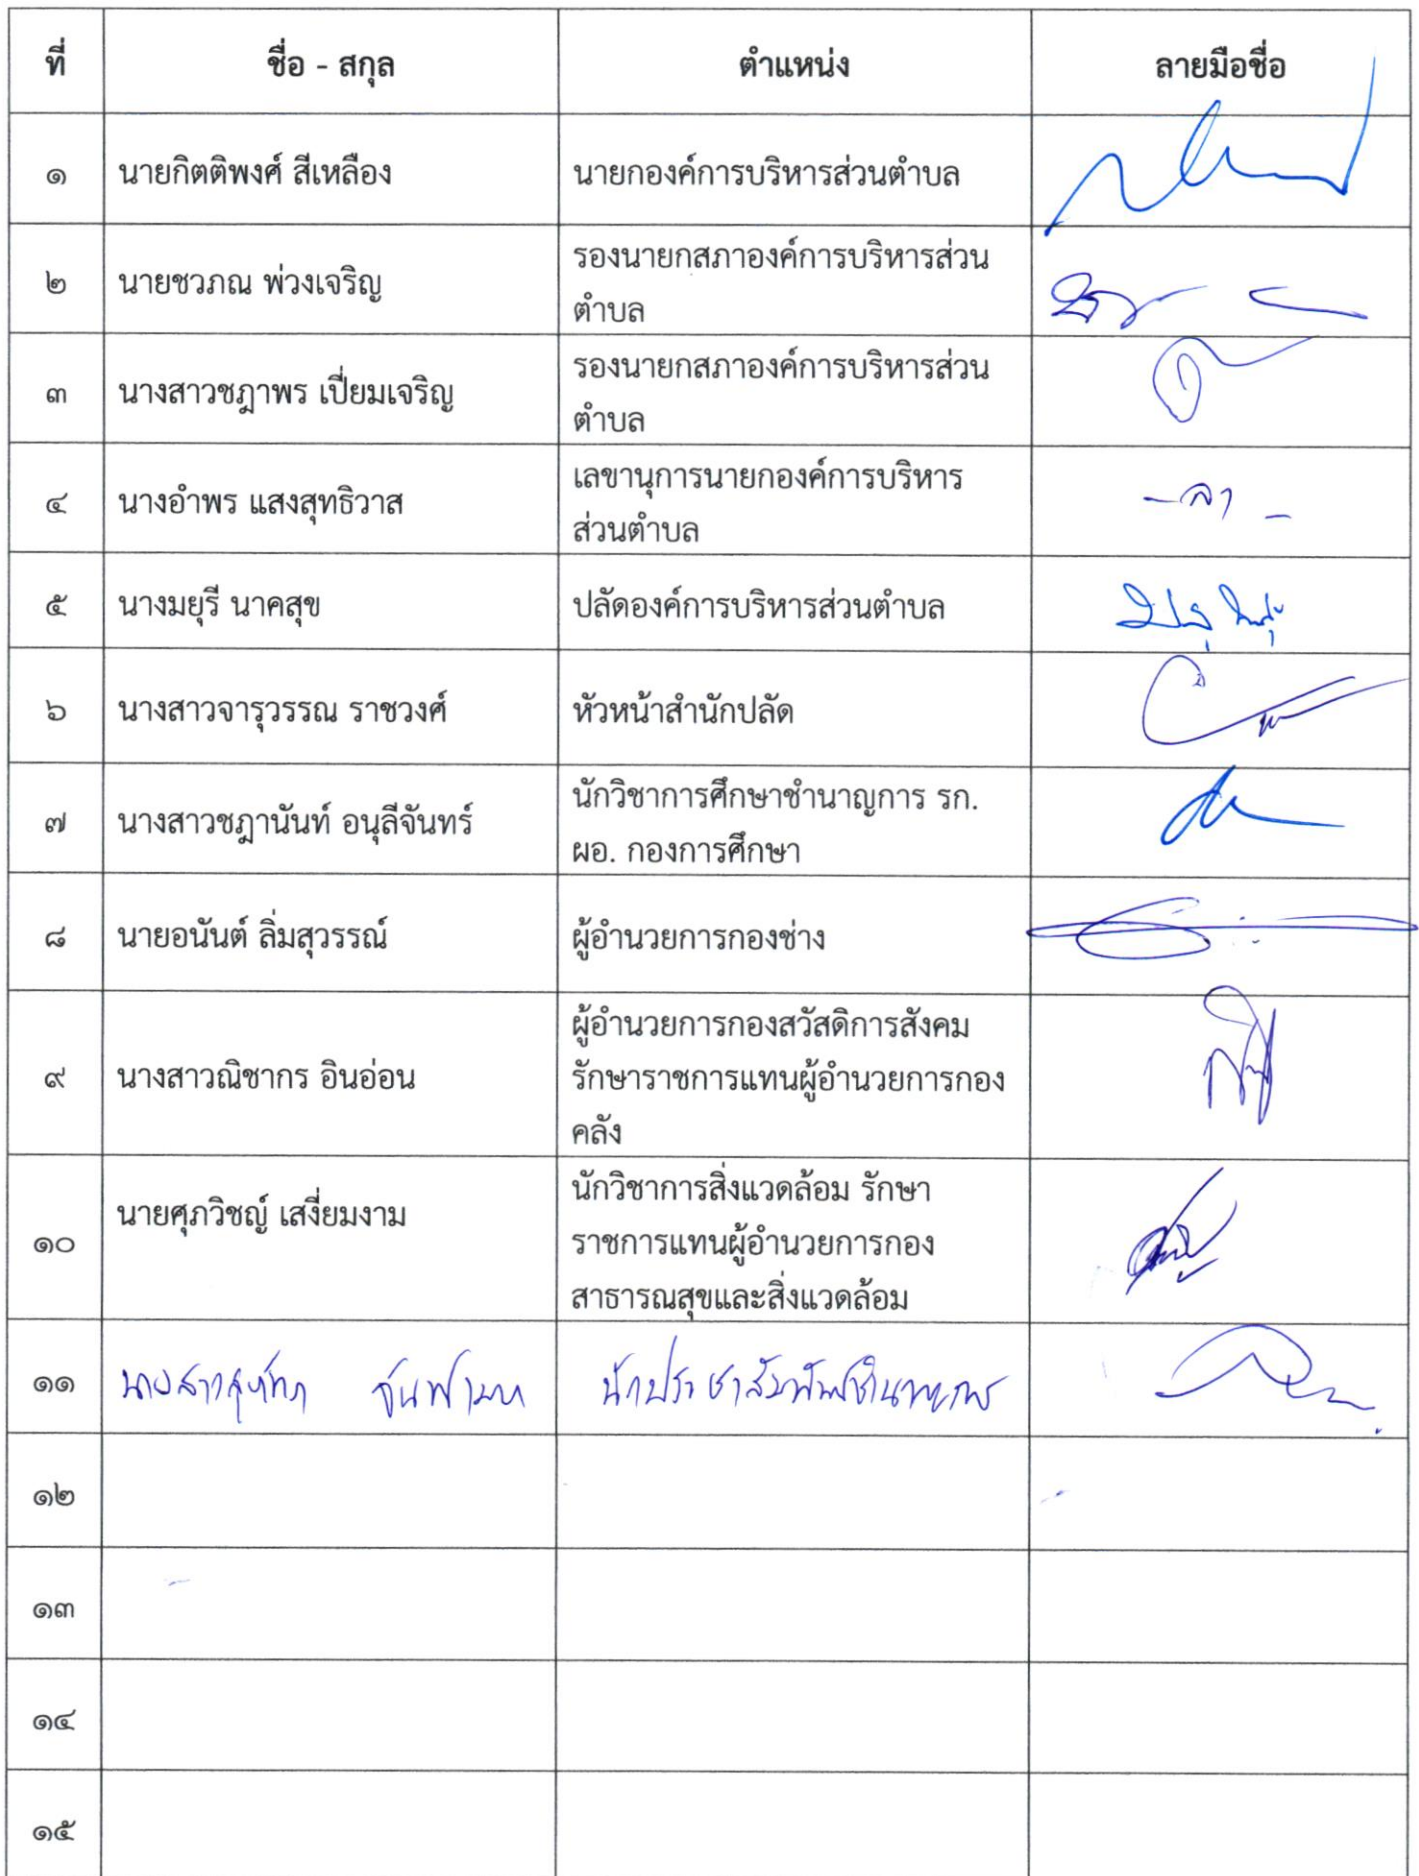 ที่ ชื่อ - สกุล ตำแหน่ง ลายมือชื่อ
๑ นายกิตติพงศ์ สีเหลือง นายกองค์การบริหารส่วนตำบล
๒ นายชวภณ พ่วงเจริญ รองนายกสภาองค์การบริหารส่วน
ตำบล
๓ นางสาวชฎาพร เปี่ยมเจริญ รองนายกสภาองค์การบริหารส่วน
ตำบล
๔ นางอำพร แสงสุทธิวาส เลขานุการนายกองค์การบริหาร
ส่วนตำบล
- ลา -
๕ นางมยุรี นาคสุข ปลัดองค์การบริหารส่วนตำบล
๖ นางสาวจารุวรรณ ราชวงศ์ หัวหน้าสำนักปลัด
๗ นางสาวชฎานันท์ อนุลีจันทร์ นักวิชาการศึกษาชำนาญการ รก.
ผอ. กองการศึกษา
๘ นายอนันต์ ลิ่มสุวรรณ์ ผู้อำนวยการกองช่าง
๙ นางสาวณิชากร อินอ่อน ผู้อำนวยการกองสวัสดิการสังคม
รักษาราชการแทนผู้อำนวยการกอง
คลัง
๑๐ นายศุภวิชญ์ เสงี่ยมงาม นักวิชาการสิ่งแวดล้อม รักษา
ราชการแทนผู้อำนวยการกอง
สาธารณสุขและสิ่งแวดล้อม
๑๑ นักประชาสัมพันธ์ชำนาญการ
๑๒
๑๓
๑๔
๑๕